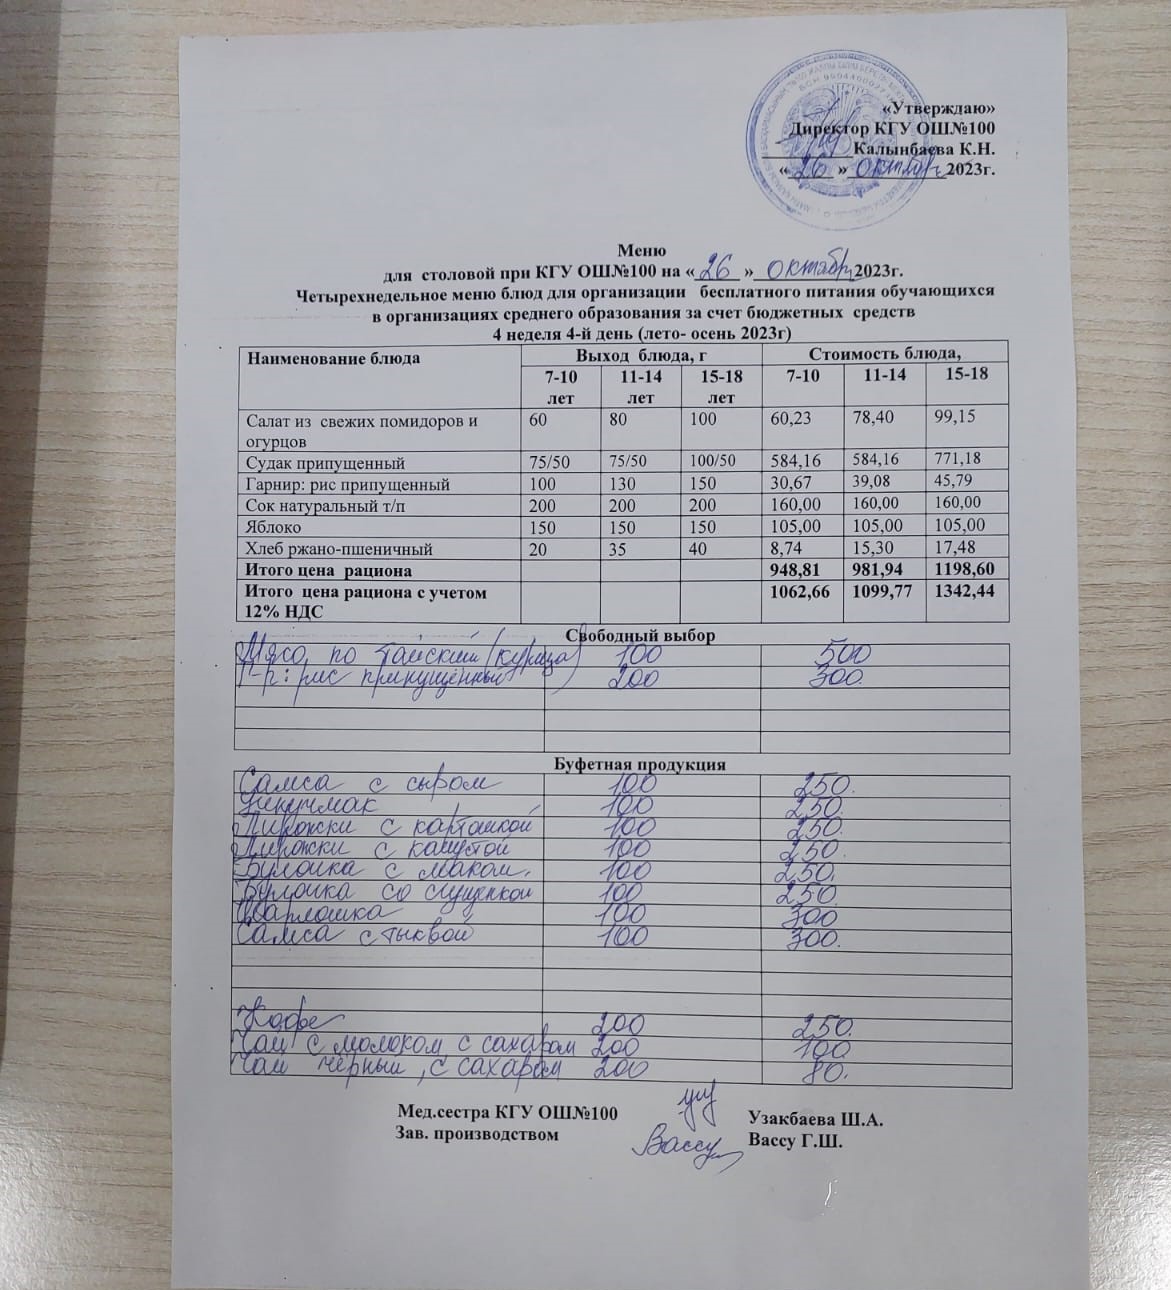 «Утверждаю»
Директор КГУ ОШ№100
Калынбаева К.Н.
«26» октября 2023г.
Меню
для столовой при КГУ ОШ№100 на «26» октября 2023г.
Четырехнедельное меню блюд для организации бесплатного питания обучающихся
в организациях среднего образования за счет бюджетных средств
4 неделя 4-й день (лето- осень 2023г)
Наименование блюда Выход блюда, г Стоимость блюда,
7-10 лет 11-14 лет 15-18 лет 7-10 11-14 15-18
Салат из свежих помидоров и огурцов 60 80 100 60,23 78,40 99,15
Судак припущенный 75/50 75/50 100/50 584,16 584,16 771,18
Гарнир: рис припущенный 100 130 150 30,67 39,08 45,79
Сок натуральный т/п 200 200 200 160,00 160,00 160,00
Яблоко 150 150 150 105,00 105,00 105,00
Хлеб ржано-пшеничный 20 35 40 8,74 15,30 17,48
Итого цена рациона 948,81 981,94 1198,60
Итого цена рациона с учетом 12% НДС 1062,66 1099,77 1342,44
Свободный выбор
Мясо по тайский (курица) 100 500
Г-р: рис припущенный 200 300.
Буфетная продукция
Самса с сыром 100 250.
Учпучмак 100 250.
Пирожки с картошкой 100 250.
Пирожки с капустой 100 250.
Булочка с маком. 100 250.
Булочка со сгущенкой 100 250.
100 300
Самса с тыквой 100 300.
Кофе 200 250.
Чай с молоком, с сахаром 200 100.
Чай черный, с сахаром 200 80.
Мед.сестра КГУ ОШ№100 Узакбаева Ш.А.
Зав. производством Вассу Вассу Г.Ш.